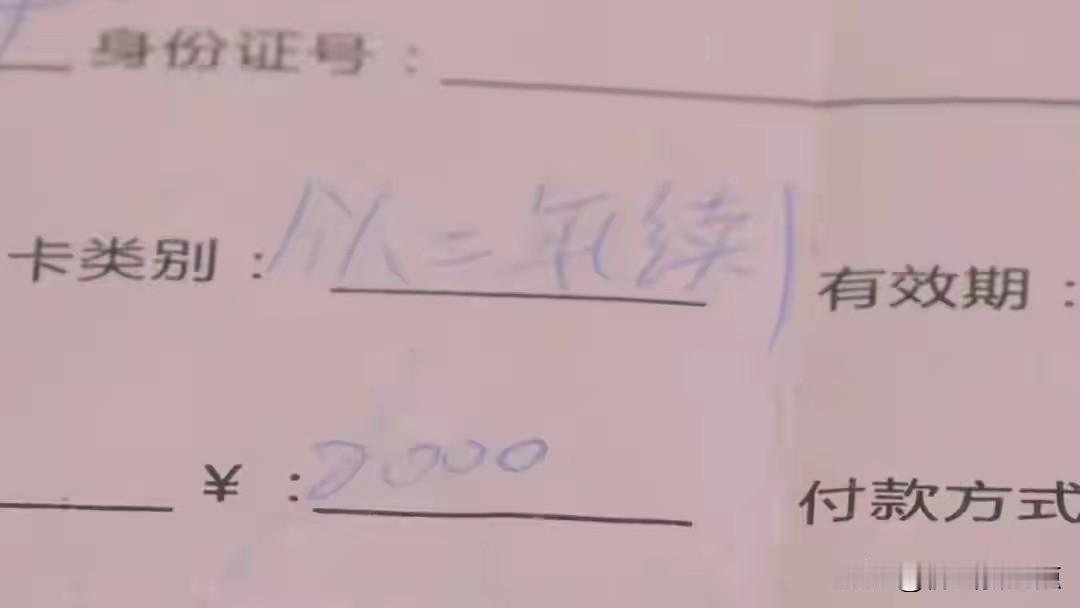 身份证号：
卡类别： 二年续 有效期：
¥：8000 付款方式